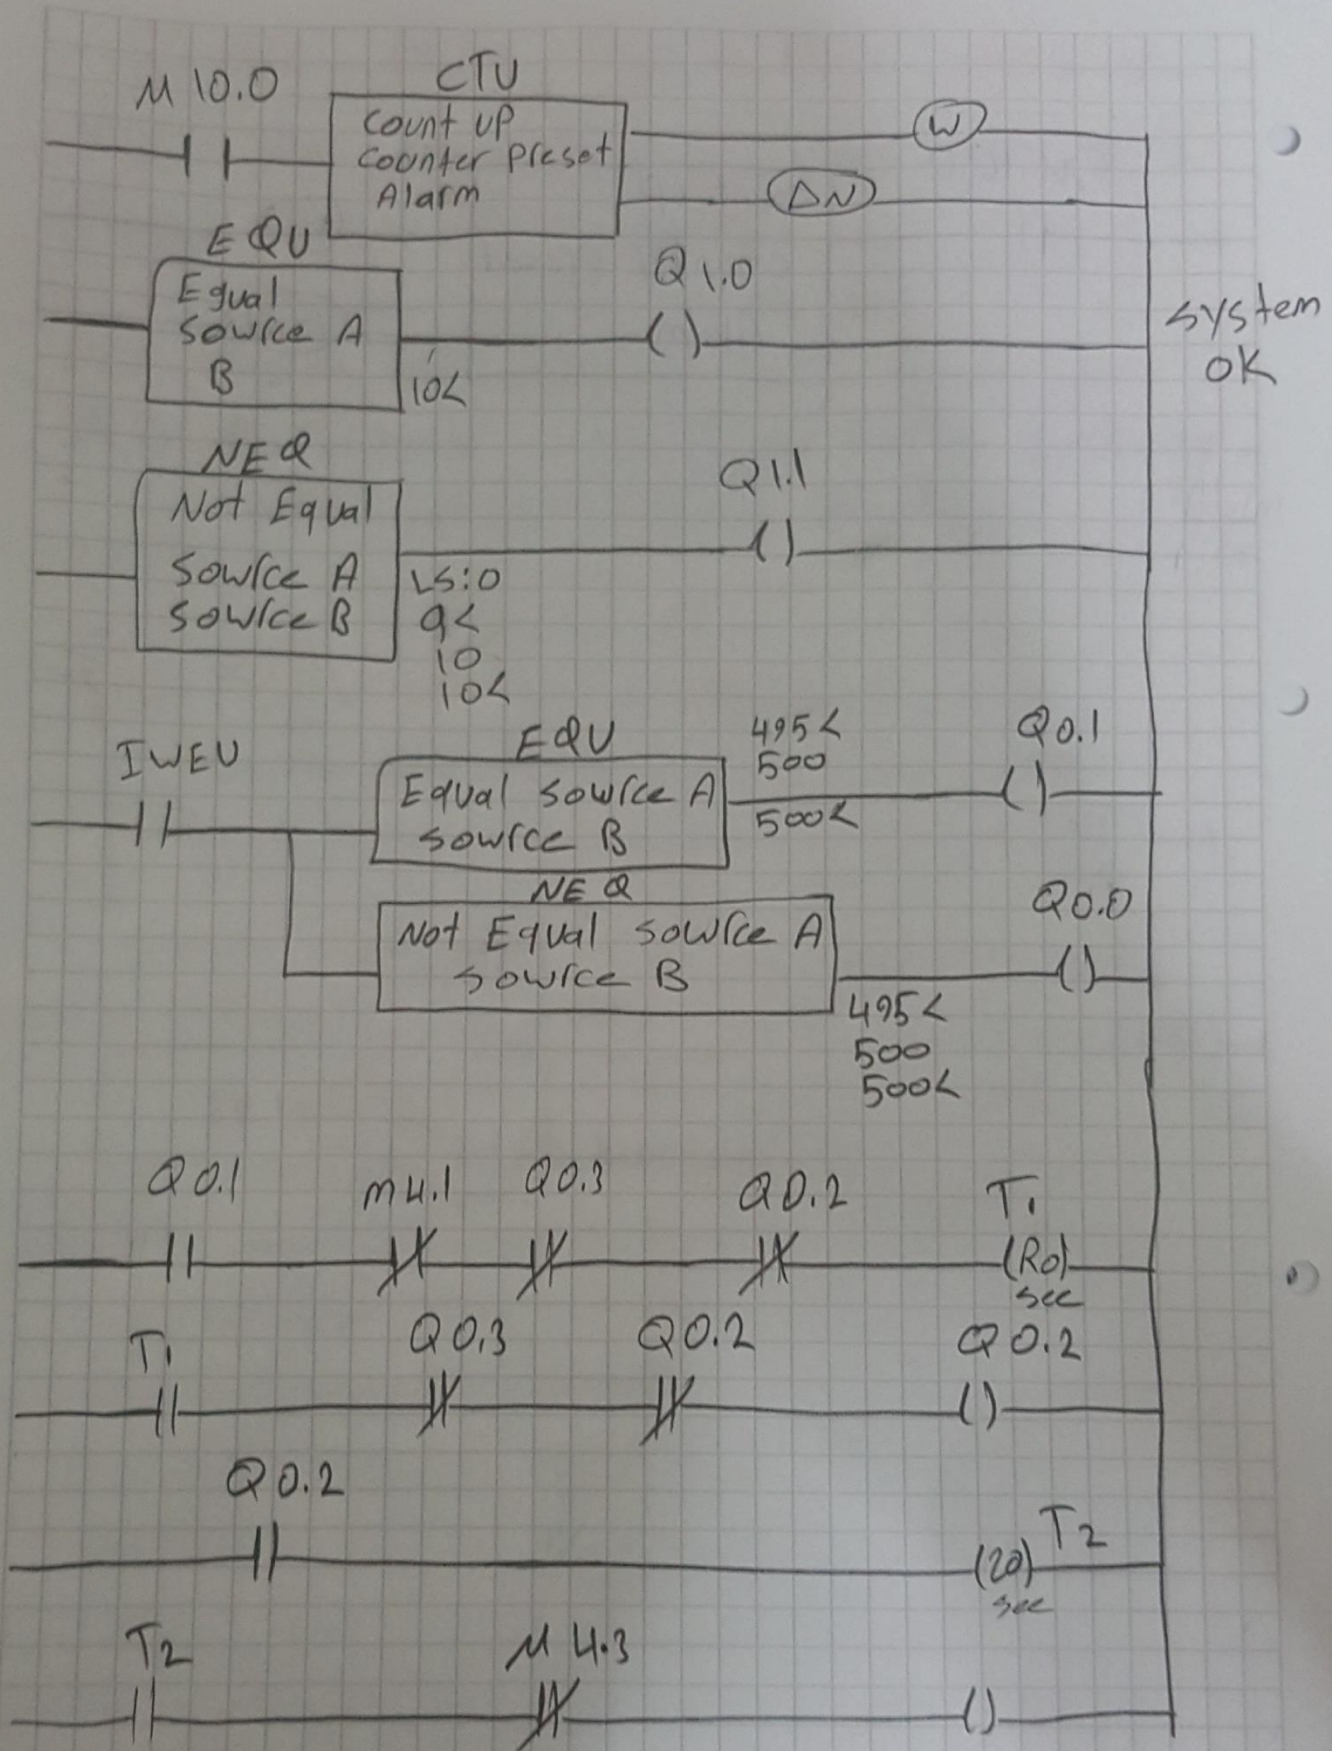 CTU
M 10.0
Count UP
Counter Preset
Alarm
W
ΔN
EQU
Equal
Source A
B
10<
Q 1.0
System
OK
NEQ
Not Equal
Source A
Source B
LS:0
9<
10
10<
Q 1.1
IWEU
EQU
Equal Source A
Source B
495<
500
500<
Q0.1
NEQ
Not Equal Source A
Source B
495<
500
500<
Q0.0
Q 0.1 M4.1 Q0.3 Q0.2 T1
(R0)
Sec
T1 Q0.3 Q0.2 Q0.2
Q 0.2
(20) T2
Sec
T2 M 4.3